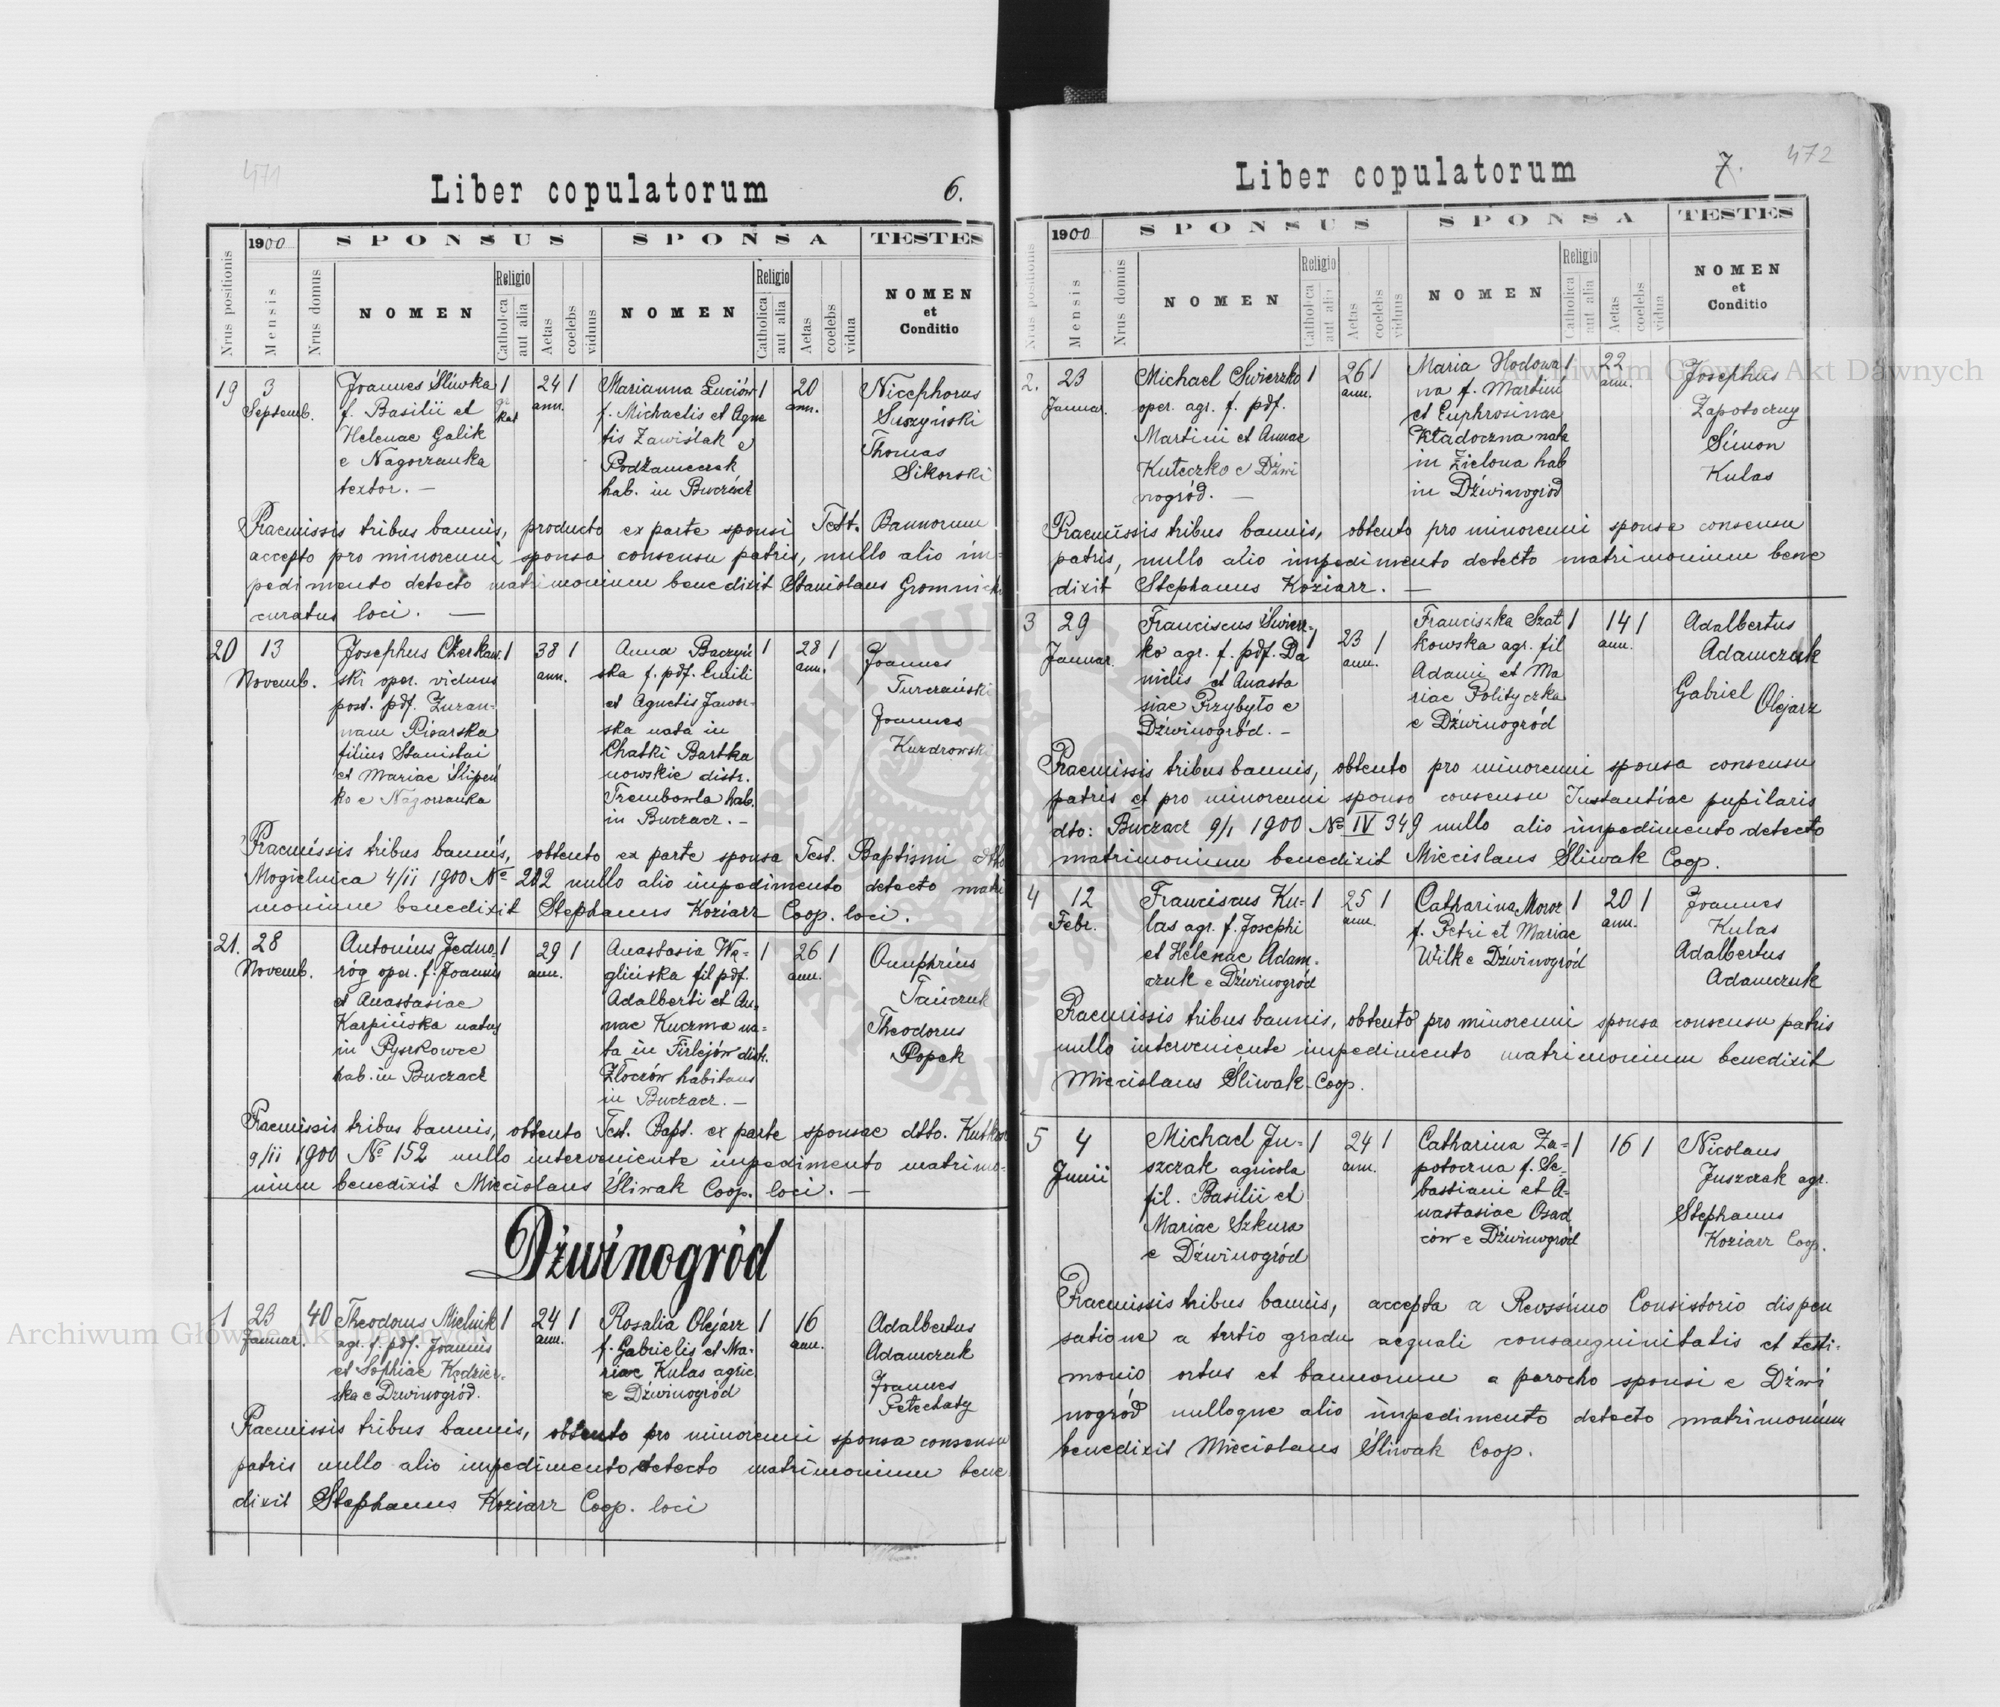 471
Liber copulatorum
6.
Nrus positionis
1900
Mensis
Nrus domus
SPONSUS
NOMEN
Religio
Catholica
aut alia
Aetas
coelebs
viduus
SPONSA
NOMEN
Religio
Catholica
aut alia
Aetas
coelebs
vidua
TESTES
NOMEN
et
Conditio
19
3
Septemb.
Joannes Śliwka
f. Basilii et
Helenae Galik
e Nagorzanka
textor. —
1
gr
kat
24 1
ann.
Marianna Łuciów
f. Michaelis et Agne
tis Zawiślak e
Podzameczek
hab. in Buczacz
1
20
ann.
Nicephorus
Suszyński
Thomas
Sikorski
Praemissis tribus bannis, producto ex parte sponsi Test. Bannorum
accepto pro minorenni sponsa consensu patris, nullo alio im-
pedimento detecto matrimonium benedixit Stanislaus Gromnicki
curatus loci. —
20
13
Novemb.
Josephus Czerkaw
ski oper. viduus
post. pdf. Zuzan-
nam Pisarska
filius Stanislai
et Mariae Slipeń
ko e Nagorzanka
1
38 1
ann.
Anna Baczyń
ska f. pdf. Emili
et Agnetis Jawor-
ska nata in
Chatki Bartka
nowskie distr.
Trembowla hab.
in Buczacz. —
1
28 1
ann.
Joannes
Turczański
Joannes
Kurdrowski
Praemissis tribus bannis, obtento ex parte sponsa Test. Baptismi dtto
Mogielnica 4/11 1900 No 202 nullo alio impedimento detecto matri
monium benedixit Stephanus Koziarz Coop. loci.
21.
28
Novemb.
Antonius Jedno-
róg oper. f. Joannis
et Anastasiae
Karpińska natus
in Pyszkowce
hab. in Buczacz
1
29 1
ann.
Anastasia Wę-
glińska fil pdf.
Adalberti et An-
nae Kuczma na-
ta in Firlejów distr.
Złoczów habitans
in Buczacz. —
1
26 1
ann.
Onuphrius
Tańczuk
Theodorus
Popek
Praemissis tribus bannis, obtento Test. Bapt. ex parte sponsae dtto.
9/11 1900 No 152 nullo interveniente impedimento matrimo-
nium benedixit Miecislaus Śliwak Coop. loci. —
Dźwinogród
1
23
Januar.
40
Theodorus Mielnik
agr. f. pdf. Joannis
et Sophiae Kędzier-
ska e Dzwinogród.
1
24 1
ann.
Rosalia Olejarz
f. Gabrielis et Ma-
riae Kulas agric.
e Dźwinogród
1
16
ann.
Adalbertus
Adamczuk
Joannes
Petechaty
Praemissis tribus bannis, obtento pro minorenni sponsa consensu
patris nullo alio impedimento detecto matrimonium bene-
dixit Stephanus Koziarz Coop. loci
472
Liber copulatorum
7.
Nrus positionis
1900
Mensis
Nrus domus
SPONSUS
NOMEN
Religio
Catholica
aut alia
Aetas
coelebs
viduus
SPONSA
NOMEN
Religio
Catholica
aut alia
Aetas
coelebs
vidua
TESTES
NOMEN
et
Conditio
2.
23
Januar.
Michael Swierzko
oper. agr. f. pdf.
Martini et Annae
Kuteczko e Dźwi
nogród. —
1
26 1
ann.
Maria Hodowa
na f. Martini
et Euphrosinae
Kładoczna nata
in Zielona hab
in Dźwinogród
1
22
ann.
Josephus
Zapotoczny
Simon
Kulas
Praemissis tribus bannis, obtento pro minorenni sponsa consensu
patris, nullo alio impedimento detecto matrimonium bene
dixit Stephanus Koziarz. —
3
29
Januar.
Franciscus Swierz-
ko agr. f. pdf. Da
nielis et Anasta
siae Przybyło e
Dźwinogród. —
1
23 1
ann.
Franciszka Szat
kowska agr. fil
Adami et Ma
riae Polityczka
e Dźwinogród
1
14 1
ann.
Adalbertus
Adamczuk
Gabriel Olejarz
Praemissis tribus bannis, obtento pro minorenni sponsa consensu
patris et pro minorenni sponso consensu Instantiae pupilaris
dto: Buczacz 9/1 1900 No IV 349 nullo alio impedimento detecto
matrimonium benedixit Miecislaus Śliwak Coop.
4
12
Febr.
Franciscus Ku-
las agr. f. Josephi
et Helenae Adam-
czuk e Dźwinogród
1
25 1
ann.
Catharina Moroz
f. Petri et Mariae
Wilk e Dźwinogród
1
20 1
ann.
Joannes
Kulas
Adalbertus
Adamczuk
Praemissis tribus bannis, obtento pro minorenni sponsa consensu patris
nullo interveniente impedimento matrimonium benedixit
Miecislaus Śliwak Coop.
5
4
Junii
Michael Ju-
szczak agricola
fil. Basilii et
Mariae Szkura
e Dźwinogród
1
24 1
ann.
Catharina Za-
potoczna f. Se-
bastiani et A-
nastasiae Osad
ców e Dźwinogród
1
16 1
Nicolaus
Juszczak agr.
Stephanus
Koziarz Coop.
Praemissis tribus bannis, accepta a Revssimo Consistorio dispen
satione a tertio gradu aequali consanguinitatis et testi-
monio ortus et bannorum a parocho sponsi e Dźwi
nogród nulloque alio impedimento detecto matrimonium
benedixit Miecislaus Śliwak Coop.
Archiwum Główne Akt Dawnych
Archiwum Główne Akt Dawnych